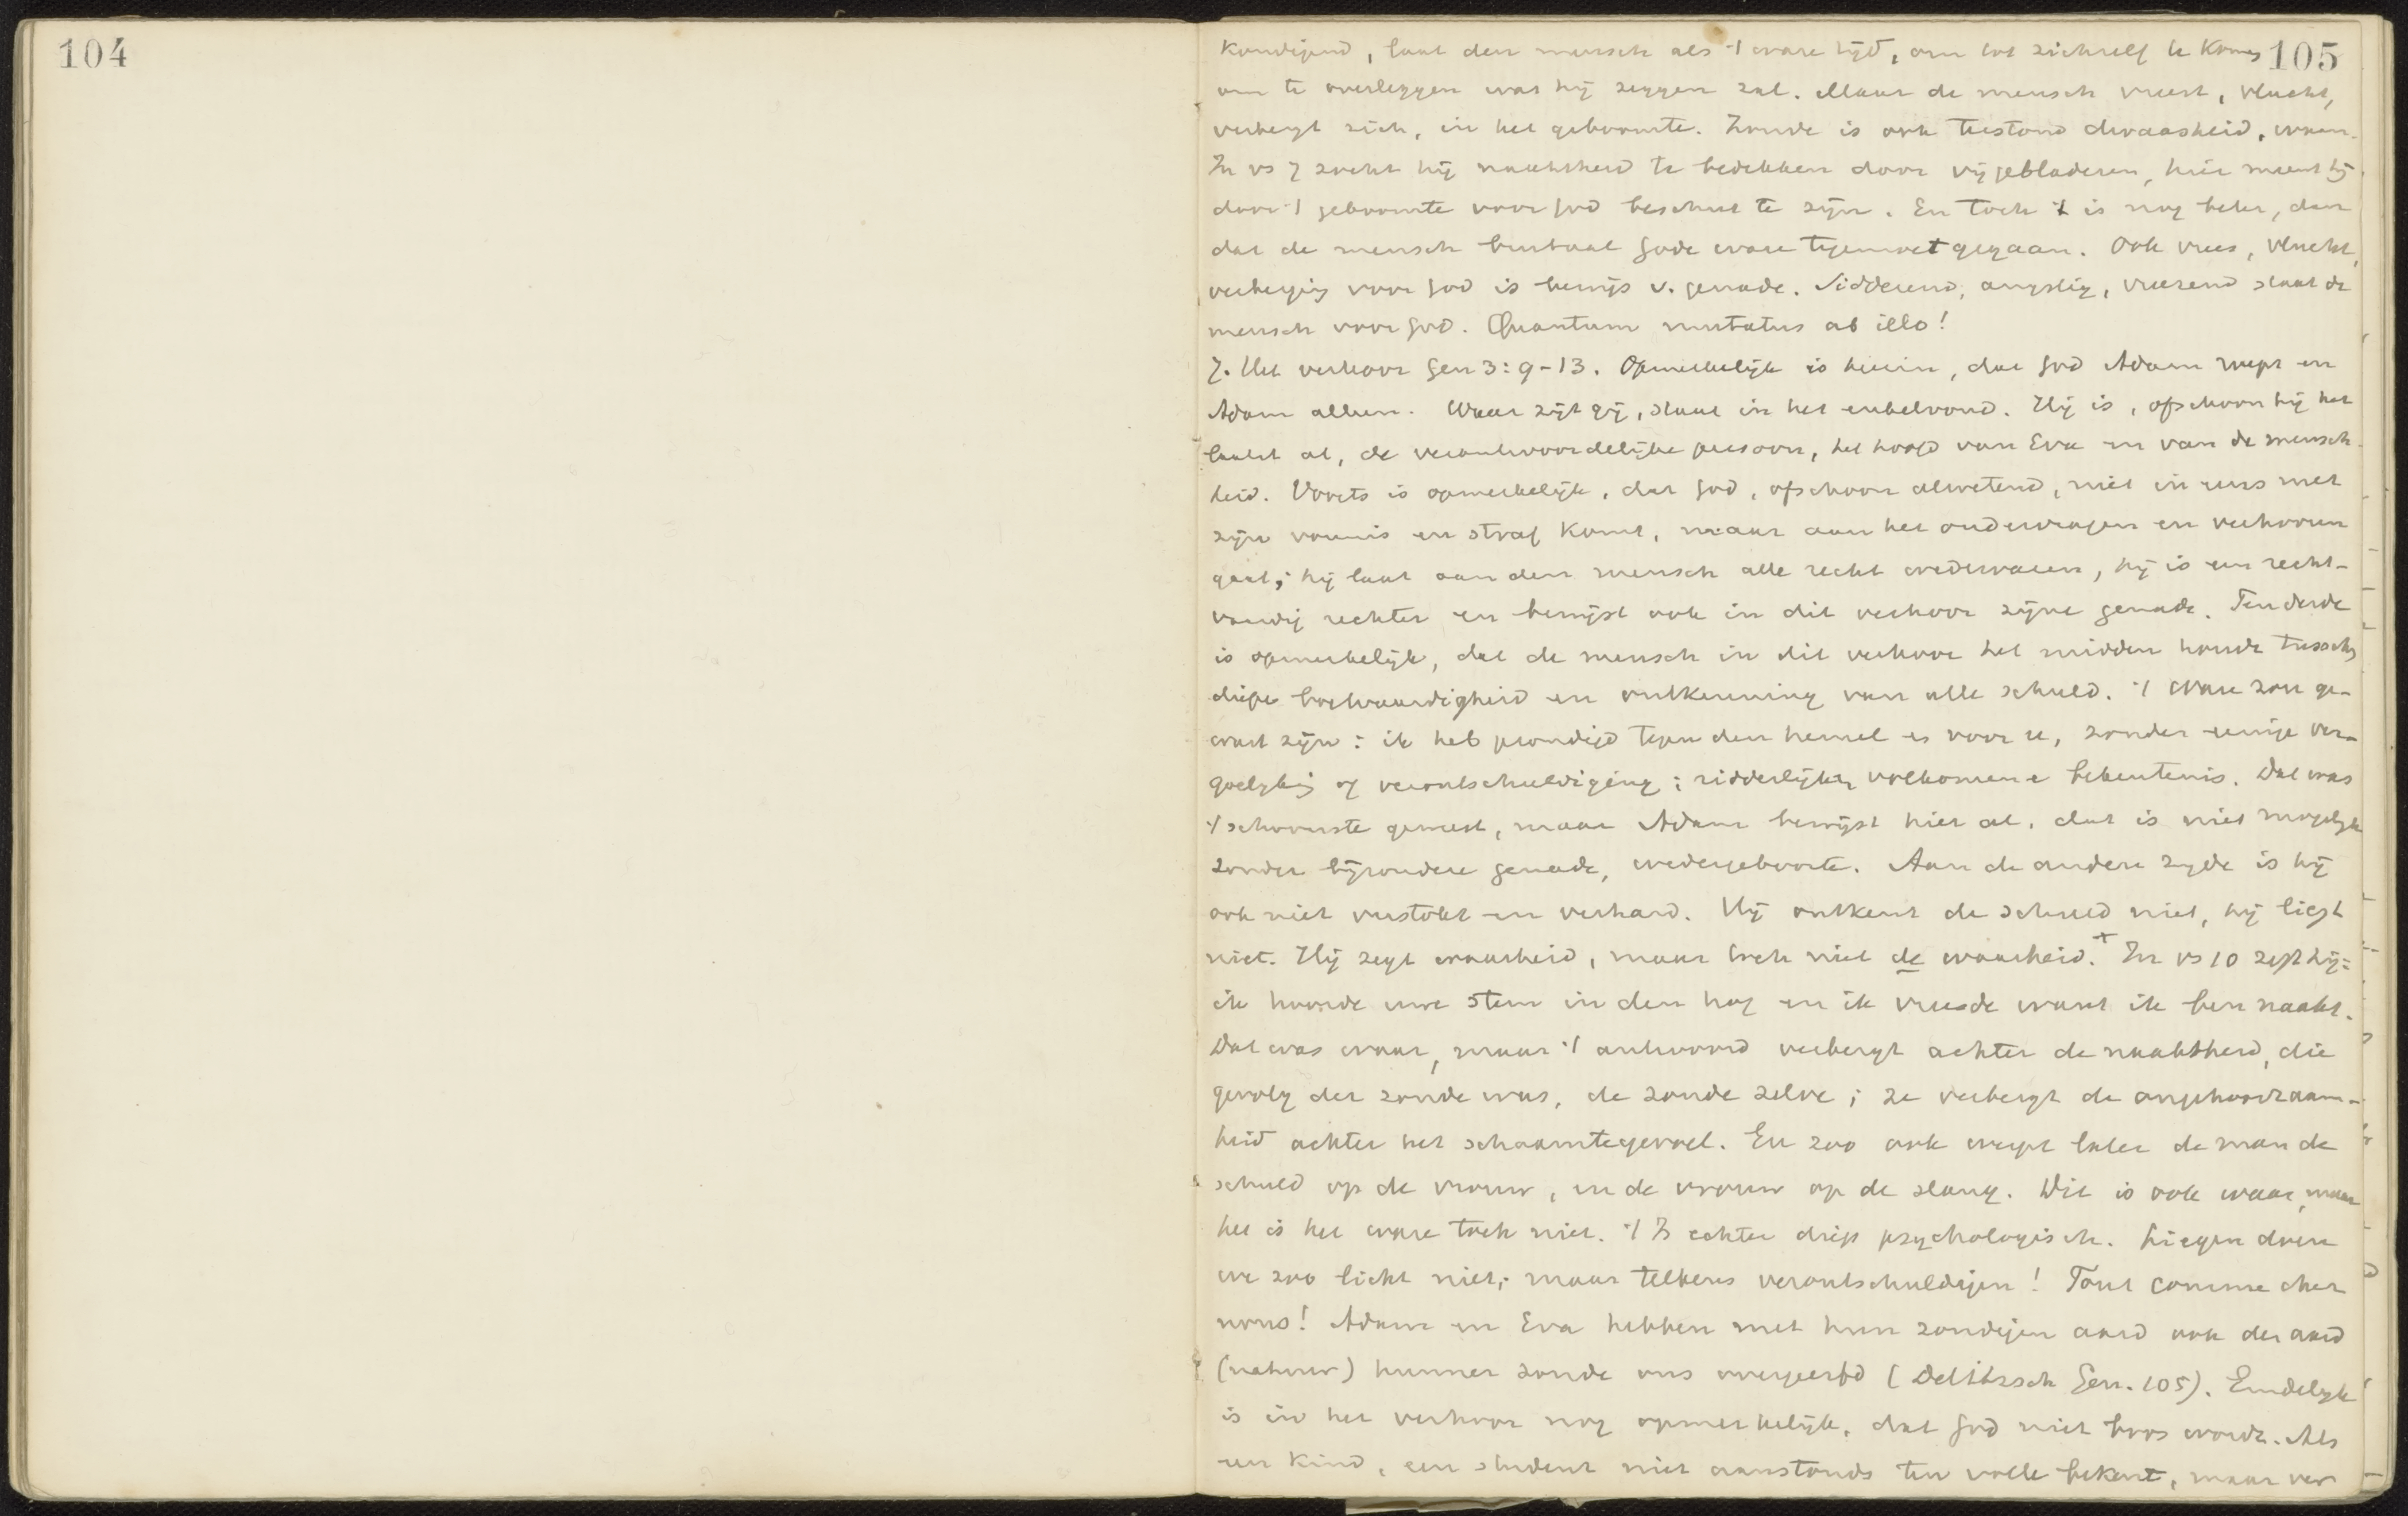 104
105
kondigend, laat den mensch als 't ware tijd, om tot zichzelf te komen
om te overleggen wat hij zeggen zal. Maar de mensch vreest, vlucht,
verbergt zich, in het geboomte. Zonde is ook terstond dwaasheid, waan.
In vs 7 zocht hij naaktheid te bedekken door vijgebladeren, hier meent hij
door 't geboomte voor God beschut te zijn. En toch 't is nog beter, dan
dat de mensch brutaal Gode ware tegemoet gegaan. Ook vrees, vlucht,
verberging voor God is bewijs v. genade. Sidderend, angstig, vreezend staat de
mensch voor God. Quantum mutatus ab illo!
7. Het verhoor Gen 3: 9-13. Opmerkelijk is hierin, dat God Adam roept en
Adam alleen. Waar zijt gij, staat in het enkelvoud. Hij is, ofschoon hij het
laatst at, de verantwoordelijke persoon, het hoofd van Eva en van de mensch-
heid. Voorts is opmerkelijk, dat God, ofschoon alwetend, niet in eens met
zijn vonnis en straf komt, maar aan het ondervragen en verhooren
gaat; hij laat aan den mensch alle recht wedervaren, hij is een recht-
vaardig rechter en bewijst ook in dit verhoor zijne genade. Ten derde
is opmerkelijk, dat de mensch in dit verhoor het midden houdt tusschen
diepe boetvaardigheid en ontkenning van alle schuld. 't Ware zou ge-
weest zijn: ik heb gezondigd tegen den hemel en voor u, zonder eenige ver-
goelijking of verontschuldiging; ridderlijke, volkomene bekentenis. Dat was
't schoonste geweest, maar Adam bewijst hier al, dat is niet mogelijk
zonder bijzondere genade, wedergeboorte. Aan de andere zijde is hij
ook niet verstokt en verhard. Hij ontkent de schuld niet, hij liegt
niet. Hij zegt waarheid, maar toch niet de waarheid.+ In vs 10 zegt hij:
ik hoorde uwe stem in den hof en ik vreesde want ik ben naakt.
Dat was waar, maar 't antwoord verbergt achter de naaktheid, die
gevolg der zonde was, de zonde zelve; ze verbergt de ongehoorzaam-
heid achter het schaamtegevoel. En zoo ook werpt later de man de
schuld op de vrouw, en de vrouw op de slang. Dit is ook waar, maar
het is het ware toch niet. 't Is echter diep psychologisch. Liegen doen
we zoo licht niet; maar telkens verontschuldigen! Tout comme chez
nous! Adam en Eva hebben met hun zondigen aard ook den aard
(natuur) hunner zonde ons overgeerfd (Delitzsch Gen. 105). Eindelijk
is in het verhoor nog opmerkelijk, dat God niet boos wordt. Als
een kind, een student niet aanstonds ten volle bekent, maar ver